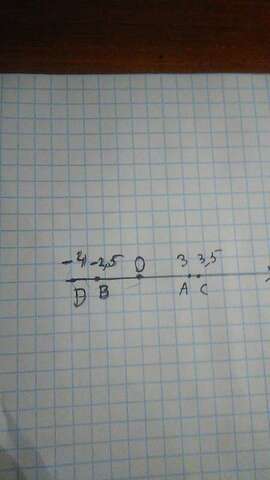 -4 -2,5 0 3 3,5
D B A C